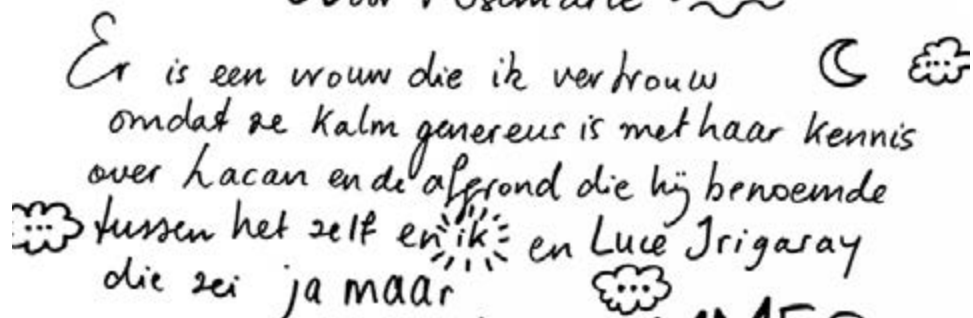 Er is een vrouw die ik vertrouw
omdat ze kalm genereus is met haar kennis
over Lacan en de afgrond die hij benoemde
tussen het zelf en 'ik' en Luce Irigaray
die zei ja maar